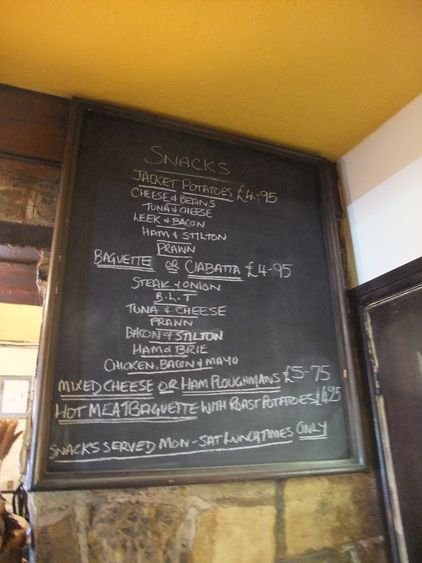 SNACKS
JACKET POTATOES £4-95
CHEESE & BEANS
TUNA & CHEESE
LEEK & BACON
HAM & STILTON
PRAWN
BAGUETTE OR CIABATTA £4-95
STEAK & ONION
B.L.T
TUNA & CHEESE
PRAWN
BACON & STILTON
HAM & BRIE
CHICKEN, BACON & MAYO
MIXED CHEESE OR HAM PLOUGHMANS £5-75
HOT MEAT BAGUETTE WITH ROAST POTATOES £4.95
SNACKS SERVED MON - SAT LUNCHTIMES ONLY